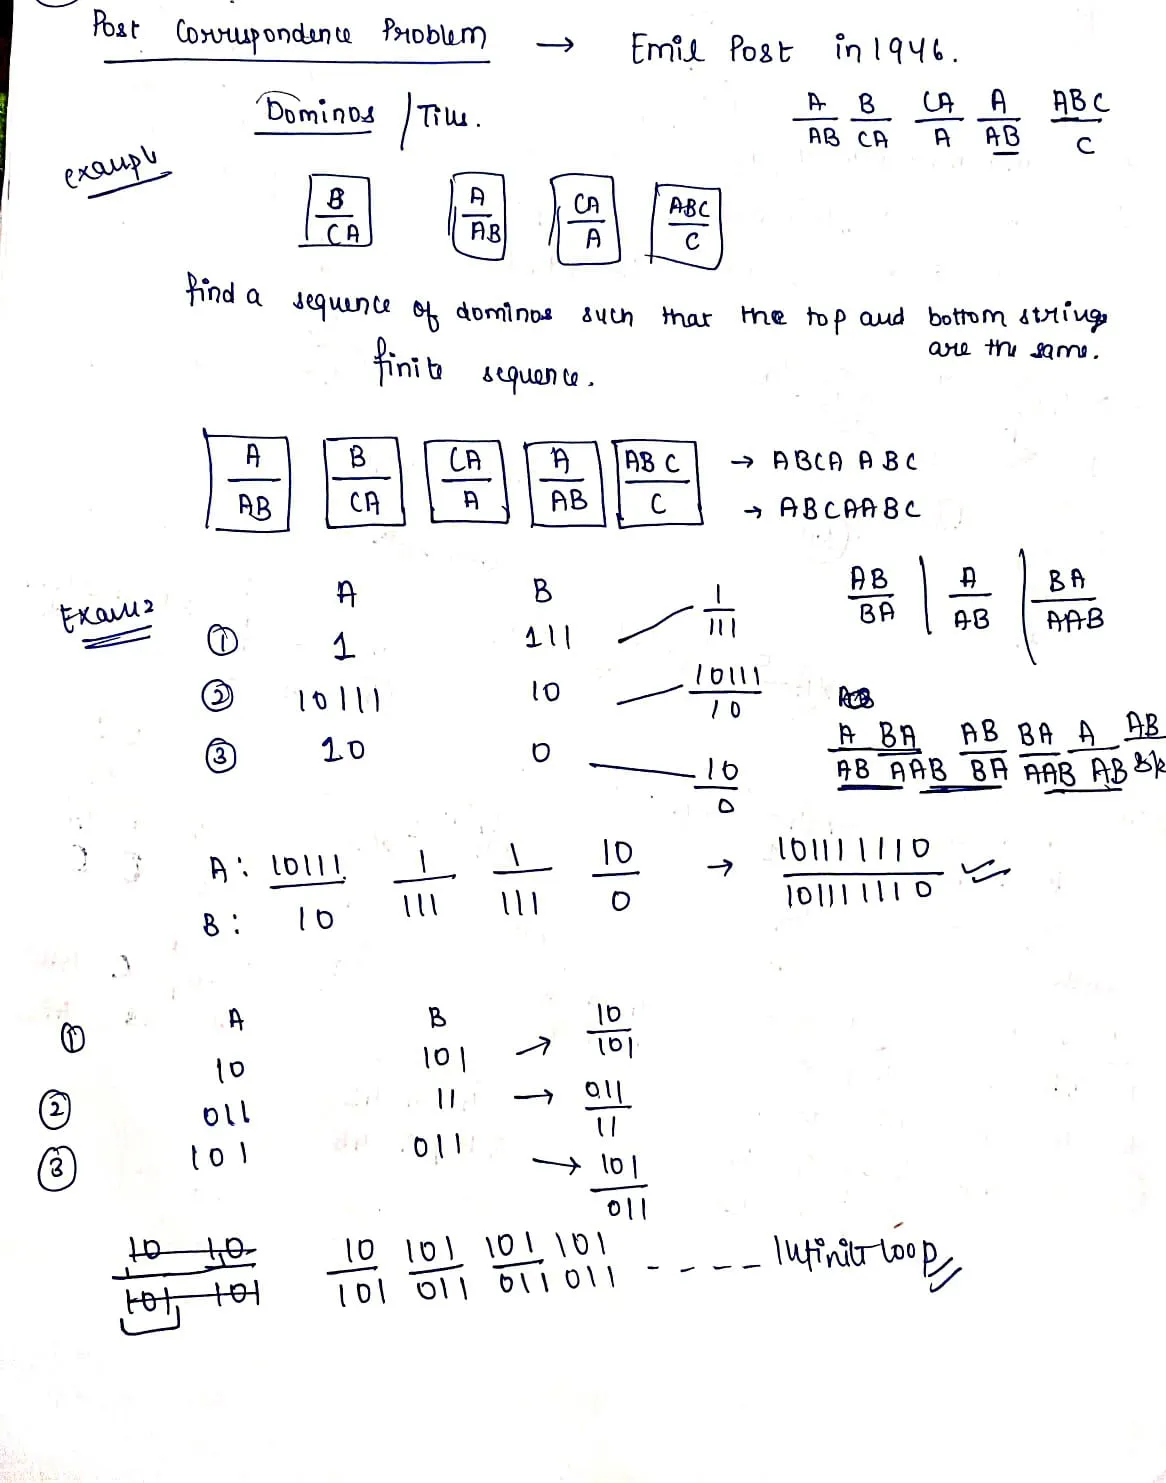 Post Correspondence Problem → Emil Post in 1946.
Dominos / Tiles.
A B CA A ABC
AB CA A AB C
example
B A CA ABC
CA AB A C
find a sequence of dominos such that the top and bottom strings
are the same.
finite sequence.
A B CA A ABC → ABCA ABC
AB CA A AB C → ABCAABC
Exam 2
A B
① 1 111 1
111
② 10111 10 10111
10
③ 10 0 10
0
AB A BA
BA AB AAB
A BA AB BA A AB
AB AAB BA AAB AB
A: 10111 1 1 10 → 101111110
B: 10 111 111 0 101111110
A B
① 10 101 → 10
101
② 011 11 → 011
11
③ 101 011 → 101
011
10 10
101 101
10 101 101 101
101 011 011 011 ---- Infinite loop